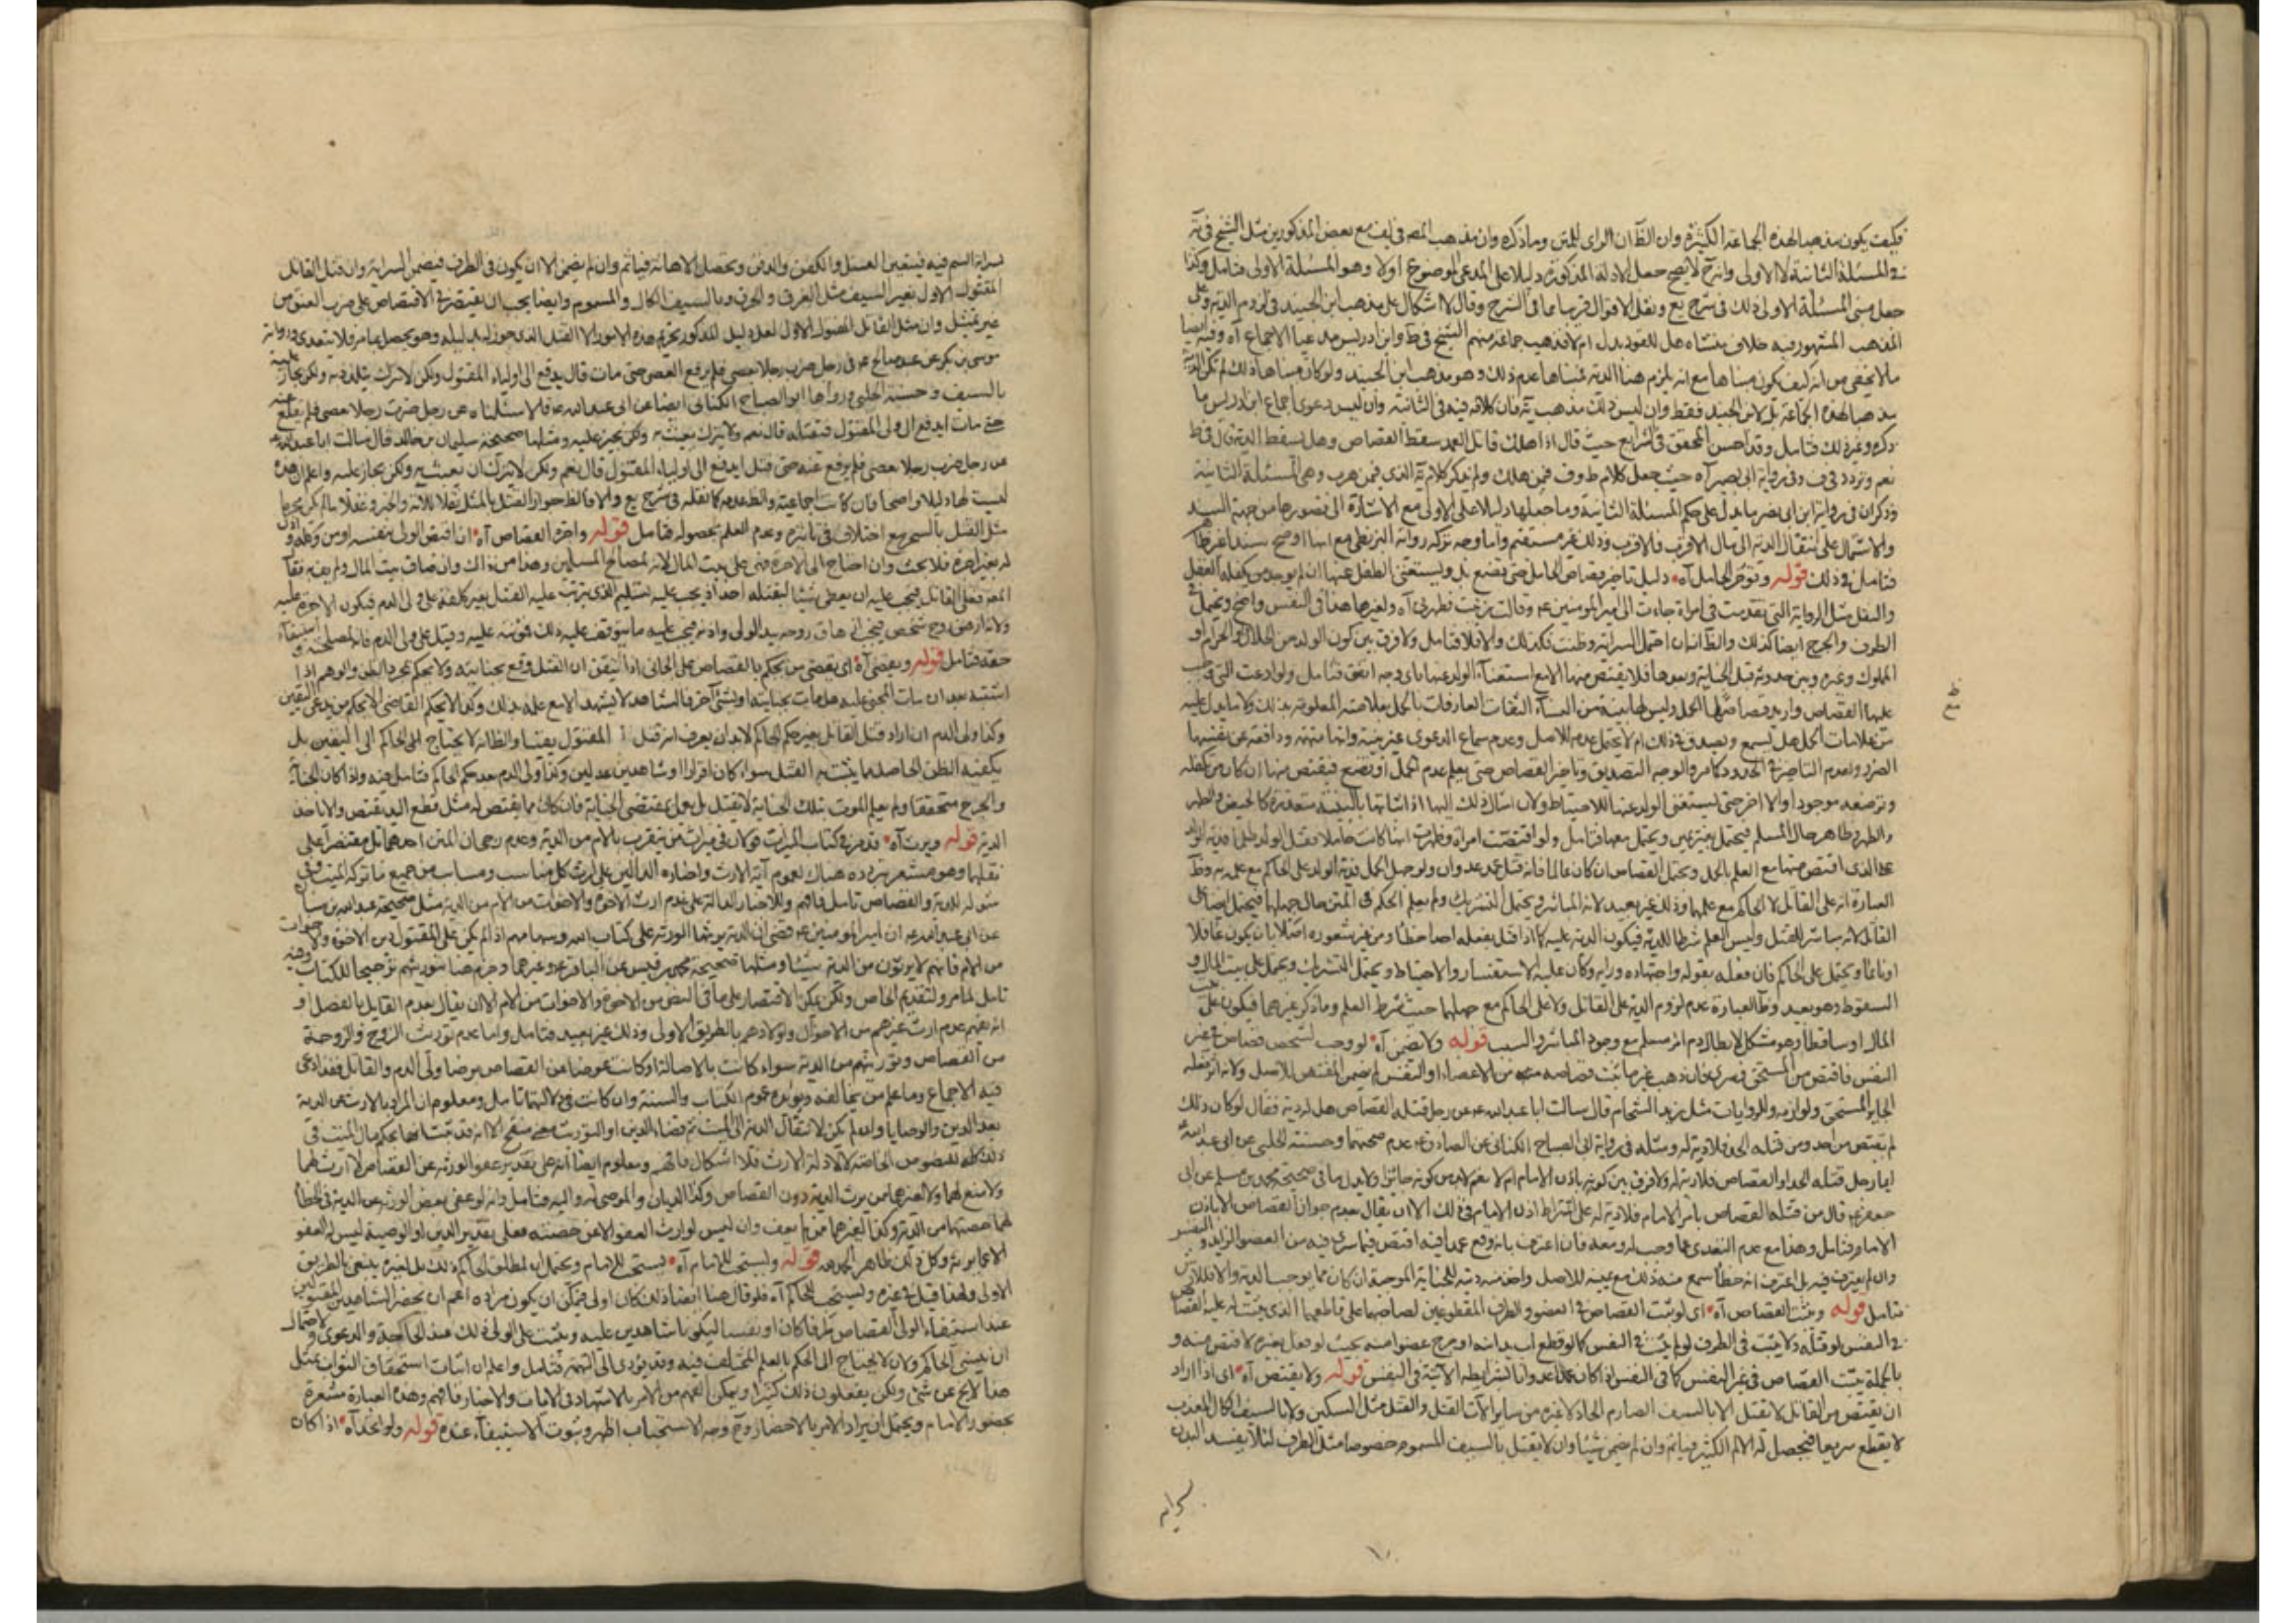 فكيف يكون مذهبا لهذه الجماعة الكثيرة وان الظ ان الراى للمتن وما ذكره وان مذهب المصه فى مع بعض المذكورين مثل الشيخ فى يه
فى المسئلة الثانية لا الاولى وانه ح لا يصح جعل الادلة المذكورة دليلا على المدعى الموضوع اولا وهو المسئلة الاولى فتامل وكذا
جعل مبنى المسئلة الاولى ذلك فى شرح يع ونقل الاقوال قريبا مما فى الشرح وقال لا اشكال على مذهب ابن الجنيد فى لزوم الدية وعلى
المذهب المشهور فيه خلاف منشاه هل للقود بدل ام لا فذهب جماعة منهم الشيخ فى ط وابن ادريس مدعيا الاجماع آه وفيه ايضا
ما لا يخفى من انه كيف يكون مبناها مع انه يلزم هنا الدية مبناها عدم ذلك وهو مذهب ابن الجنيد ولو كان مبناها ذلك لم تكن الدية
مذهبا لهذه الجماعة بل لابن الجنيد فقط وان ليس ذلك مذهب يه فان كلامه فيه فى الثانية وان ليس دعوى اجماع ابن ادريس ما
ذكره وغير ذلك فتامل وقد احسن المحقق فى الشرايع حيث قال اذا هلك قاتل العمد سقط القصاص وهل يسقط الدية قال فى ط
نعم وتردد فى ف وفى رواية ابى بصير آه حيث جعل كلام ط وف فيمن هلك ولم يذكر كلام يه الذى فيمن هرب وهى المسئلة الثانية
وذكر ان فى رواية ابن ابى نصر ما يدل على حكم المسئلة الثانية وما جعلها دليلا على الاولى مع الاشارة الى قصورها من جهة السند
والاشتمال على انتقال الدية الى مال الاقرب فالاقرب وذلك غير مستقيم واما وجه تركه رواية البزنطى مع انها اوضح سندا فغير ظاهر
فتامل فى ذلك قوله وتؤخر الحامل آه دليل تاخير قصاص الحامل حتى تضع بل ويستغنى الطفل عنها ان لم يوجد من يكفله العقل
والنقل مثل الرواية التى تقدمت فى امراة جاءت الى امير المؤمنين ع وقالت زنيت فطهرنى آه ولغيرها هذا فى النفس واضح ويحتمل فى
الطرف والجرح ايضا كذلك والظ انه ان احتمل السراية وظنت فكذلك والا فلا فتامل ولا فرق بين كون الولد من الحلال والحرام او
المملوك وغيره وبين حدوثه قبل الجناية وبعدها فلا يقتص منها الا مع استغناء الولد عنها باى وجه اتفق فتامل ولو ادعت التى وجب
عليها القصاص واريد قصاصها الحمل وليس لها بينة من النساء الثقات العارفات بالحمل بعلامته المعلومة بذلك ولا ما يدل عليه
من علامات الحمل هل يسمع ويصدق فى ذلك ام لا يحتمل عدمه للاصل وعدم سماع الدعوى بغير بينة وانها متهمة ودافعة عن نفسها
الضرر ولعدم التاخير فى الحدود كما مر والوجه التصديق وتاخير القصاص حتى يعلم عدم الحمل او تضع فيقتص منها ان كان من يكفله
وترضعه موجودا والا اخر حتى يستغنى الولد عنها للاحتياط ولان امثال ذلك اليها اذ اثباتها بالبينة متعذرة كالحيض والطهر
والظهر وظاهر حال المسلم فيحتمل بيمين ويحتمل معها فتامل ولو اقتصت امراة وظهرت انها كانت حاملا وقتل الولد فدية الولد
على الذى اقتص منها مع العلم بالحمل ويحتمل القصاص ان كان عالما فانه قتل عمد عدوان ولو جهل الحمل فدية الولد على الحاكم مع علمه به وظ
العبارة انه على القاتل لا الحاكم مع علمها وذلك غير بعيد لانه المباشر ويحتمل التشريك ولم يعلم الحكم فى المتن حال جهلها فيحتمل ايضا على
القاتل لانه مباشر للقتل وليس العلم شرطا للدية فيكون الدية عليه كما اذا قتل بفعله احدا خطأ ومن غير شعوره اصلا بان يكون غافلا
او نائما ويحتمل على الحاكم فان فعله بقوله واجتهاده ورايه وكان عليه الاستفسار والاحتياط ويحتمل التشريك ويحتمل على بيت المال و
السقوط وهو بعيد وظ العبارة عدم لزوم الدية على القاتل ولا على الحاكم مع جهلها حيث شرط العلم وما ذكر غيرهما فيكون على بيت
المال او ساقطا وهو مشكل لابطال دم امرء مسلم مع وجود المباشر والسبب قوله ولا يضمن آه لو وجب لشخص قصاص فى غير
النفس فاقتص من المستحق فسرى فان ذهب غير ما يثبت قصاصه منه من الاعضاء او النفس لم يضمن المقتص للاصل ولانه اثر فعله
الجايز المستحق ولوازمه وللروايات مثل زيد الشحام قال سالت ابا عبد الله ع عن رجل قتله القصاص هل له دية فقال لو كان ذلك
لم يقتص من احد ومن قتله الحد فلا دية له ومثله فى رواية ابى الصباح الكنانى عن الصادق ع عدم صحتهما وحسنة الحلبى عن ابى عبد الله ع
ايما رجل قتله الحد او القصاص فلا دية له ولا فرق بين كونه باذن الامام ام لا نعم لا بد من كونه جائزا ولا يدل ما فى صحيحة محمد بن مسلم عن ابى
جعفر ع قال من قتله القصاص بامر الامام فلا دية له على اشتراط اذن الامام فى ذلك الا ان يقال بعدم جواز القصاص الا باذن
الامام فتامل وهذا مع عدم التعدى عما وجب له ومعه فان اعترف بانه وقع عمدا فيه اقتص فيما سرى فيه من العضو الزايد والنفس
وان لم يعترف فيه بل اعترف انه خطأ سمع منه ذلك مع يمينه للاصل واخذ منه دية للجناية الموجبة ان كان مما يوجب الدية والا فلا ارش
فتامل قوله ويثبت القصاص آه اى لو ثبت القصاص فى العضو والطرف المقطوعين لصاحبهما على قاطعهما الذى يثبت له عليه القصاص
فى النفس لو قتله ولا يثبت فى الطرف لو لم يثبت فى النفس كما لو قطع اب يد ابنه او جرح عضوا منه بحيث لو فعل بغيره لاقتص منه و
بالجملة يثبت القصاص فى غير النفس كما فى النفس اذا كان عمدا عدوانا بالشرايط الآتية فى النفس قوله ولا يقتص آه اى اذا اراد
ان يقتص من القاتل لا تقتل الا بالسيف الصارم الحاد لا غيره من ساير آلات القتل والقتل مثل السكين ولا بالسيف الكال المعذب
لا يقطع سريعا فيحصل له الالم الكثير فياثم وان لم يضمن شيئا وان لا يقتل بالسيف المسموم خصوصا مثل الطرف لئلا يفسد البدن
١٠
سراية السم فيه فيتعين الغسل والكفن والدفن ويحصل الاهانة فياثم وان لم يضمن الا ان يكون فى الطرف فيضمن السراية وان قتل القاتل
المقتول الاول بغير السيف مثل الغرق والحرق وبالسيف الكال والمسموم وايضا يجب ان يقتصر فى الاقتصاص على ضرب العنق من
غير تمثيل وان مثل القاتل المقتول الاول لعل دليل المذكور تحريم هذه الامور الا القتل الذى جوز له بدليله وهو يحصل بما مر فلا يتعدى ورواية
موسى بن بكر عن عبد صالح ع فى رجل ضرب رجلا بعصى فلم يرفع العصى حتى مات قال يدفع الى اولياء المقتول ولكن لا يترك يتلذذ به ولكن يجاز عليه
بالسيف وحسنة الحلبى ورواها ابو الصباح الكنانى ايضا عن ابى عبد الله ع قالا سئلناه عن رجل ضرب رجلا بعصى فلم يقلع عنه
حتى مات ايدفع الى ولى المقتول فيقتله قال نعم ولا يترك يعبث به ولكن يجيز عليه ومثلها صحيحة سليمان بن خالد قال سالت ابا عبد الله ع
عن رجل ضرب رجلا بعصى فلم يرفع عنه حتى قتل ايدفع الى اولياء المقتول قال نعم ولكن لا يترك ان يعبث به ولكن يجاز عليه واعلم ان هذه
ليست لها دليلا واضحا فان كانت اجماعية والظ عدمه كما نقله فى شرح يع والا فالظ جواز القتل بالمثل نقلا للآية والخبر وعقلا ما لم يكن محرما
مثل القتل بالسحر مع اختلاف فى تاثيره وعدم العلم بحصوله فتامل قوله واجرة القصاص آه ان اقتص الولى بنفسه او من وكله
له بغير اجرة فلا بحث وان احتاج الى الاجرة فهى على بيت المال لانه لمصالح المسلمين وهذا من ذاك وان ضاق بيت المال ولم يف فقا
المصه فعلى القاتل فيجب عليه ان يعطى شيئا ليقتله احد اذ يجب عليه تسليم الذى يترتب عليه القتل بغير كلفة على ولى الدم فيكون الاجرة عليه
ولانه ازهق روح شخص فيجب ازهاق روحه بيد الولى واذنه فيجب عليه ما يتوقف عليه ذلك فمؤنته عليه وقيل على ولى الدم فانه لمصلحته واستيفاء
حقه فتامل قوله ويقضى آه اى يقضى من يحكم بالقصاص على الجانى اذا تيقن ان القتل وقع بجنايته ولا يحكم بمجرد الظن والوهم اذا
اشتبه بعد ان مات المجنى عليه هل مات بجنايته او بشئ آخر فالشاهد لا يشهد الا مع علمه بذلك وكذا لا يحكم القاضى الا بحكم من يدعى اليقين
وكذا ولى الدم ان اراد قتل القاتل بغير حكم الحاكم لا بد ان يعرف انه قتل المقتول يقينا والظ انه لا يحتاج الى الحاكم الى اليقين بل
يكفيه الظن الحاصل بما يثبت به القتل سواء كان اقرارا او شاهدين عدلين وكذا ولى الدم بعد حكم الحاكم فتامل فيه واذا كان الجناية
والجرح متحققا ولم يعلم الموت بتلك الجناية لا يقتل بل يعمل بمقتضى الجناية فان كان مما يقتص له مثل قطع اليد يقتص والا اخذ
الدية قوله ويرث آه قد مر فى كتاب الميراث قولان فى ميراث من يتقرب بالام من الدية وعدم رجحان المتن احدهما بل مقتصرا على
نقلهما وهو مشعر بتردده هناك لعموم آية الارث واخباره الدالين على ارث كل مناسب ومسابب من جميع ما تركه الميت وفى
شموله للدية والقصاص تامل فافهم وللاخبار الدالة على عدم ارث الاخوة والاخوات من الام من الدية مثل صحيحة عبد الله بن سنان
عن ابى عبد الله ع ان امير المؤمنين ع قضى ان الدية يرثها الورثة على كتاب الله وسهامهم اذا لم يكن على المقتول دين الا الاخوة والاخوات
من الام فانهم لا يرثون من الدية شيئا ومثلها صحيحة محمد بن قيس عن الباقر ع وغيرهما وجزم هنا بتوريثهم ترجيحا للكتاب وفيه
تامل لما مر ولتقديم الخاص ولكن يمكن الاقتصار على ما فى النص من الاخوة والاخوات من الام الا ان يقال بعدم القايل بالفصل او
انه يفهم عدم ارث غيرهم من الاخوال واولادهم بالطريق الاولى وذلك غير بعيد فتامل واما عدم توريث الزوج والزوجة
من القصاص وتوريثهم من الدية سواء كانت بالاصالة او كانت عوضا عن القصاص برضا ولى الدم والقاتل فقد ادعى
فيه الاجماع وما علم من يخالفه ويؤيده عموم الكتاب والسنة وان كانت فى دلالتهما تامل ومعلوم ان المراد بالارث من الدية
بعد الدين والوصايا وان لم يكن لانتقال الدية الى الميت ثم قضاء الدين او التوريث معنى منقح الا انه قد ثبت انها بحكم مال الميت فى
ذلك كله لنصوص الخاصة لا لادلة الارث فلا اشكال فافهم ومعلوم ايضا انه على تقدير عفو الورثة عن القصاص لا ارث لهما
ولا منع لهما ولا لغيرهما ممن يرث الدية دون القصاص وكذا الديان والموصى له واليه فتامل وانه لو عفى بعض الورثة عن الدية فى الخطأ
لهما حصتهما من الدية وكذا لغيرهما ممن لم يعف وان ليس لوارث العفو الا عن حصته فعلى تقدير الدين او الوصية ليس له العفو
الا عما يرثه وكل ذلك ظاهر الحمد لله قوله ويستحب للامام آه يستحب للامام ويحتمل ان لمطلق الحاكم ذلك بل لغيره ينبغى بالطريق
الاولى ولهذا قيل فى غيره ويستحب للحاكم آه فلو قال هنا ايضا ذلك كان اولى فيمكن ان يكون مراده اعم ان يحضر الشاهدين المقبولين
عند استيفاء الولى القصاص طرفا كان او نفسا ليكونا شاهدين عليه ويثبت على الولى ذلك عند المحاكمة والدعوى ولاحتمال
ان ينسى الحاكم ولان لا يحتاج الى الحكم بالعلم المختلف فيه وقد يؤدى الى التهمة فتامل واعلم ان اثبات استحقاق الثواب بمثل
هذا لا يخ عن شئ ولكن يفعلون ذلك كثيرا ويمكن الفهم من الامر بالاشهاد فى الآيات والاخبار فافهم وهذه العبارة مشعرة
بحضور الامام ويحتمل ان يراد الامر بالاحضار وح وجه الاستحباب اظهر وثبوت الاستيفاء عنده قوله ولو اتحد آه اذا كان